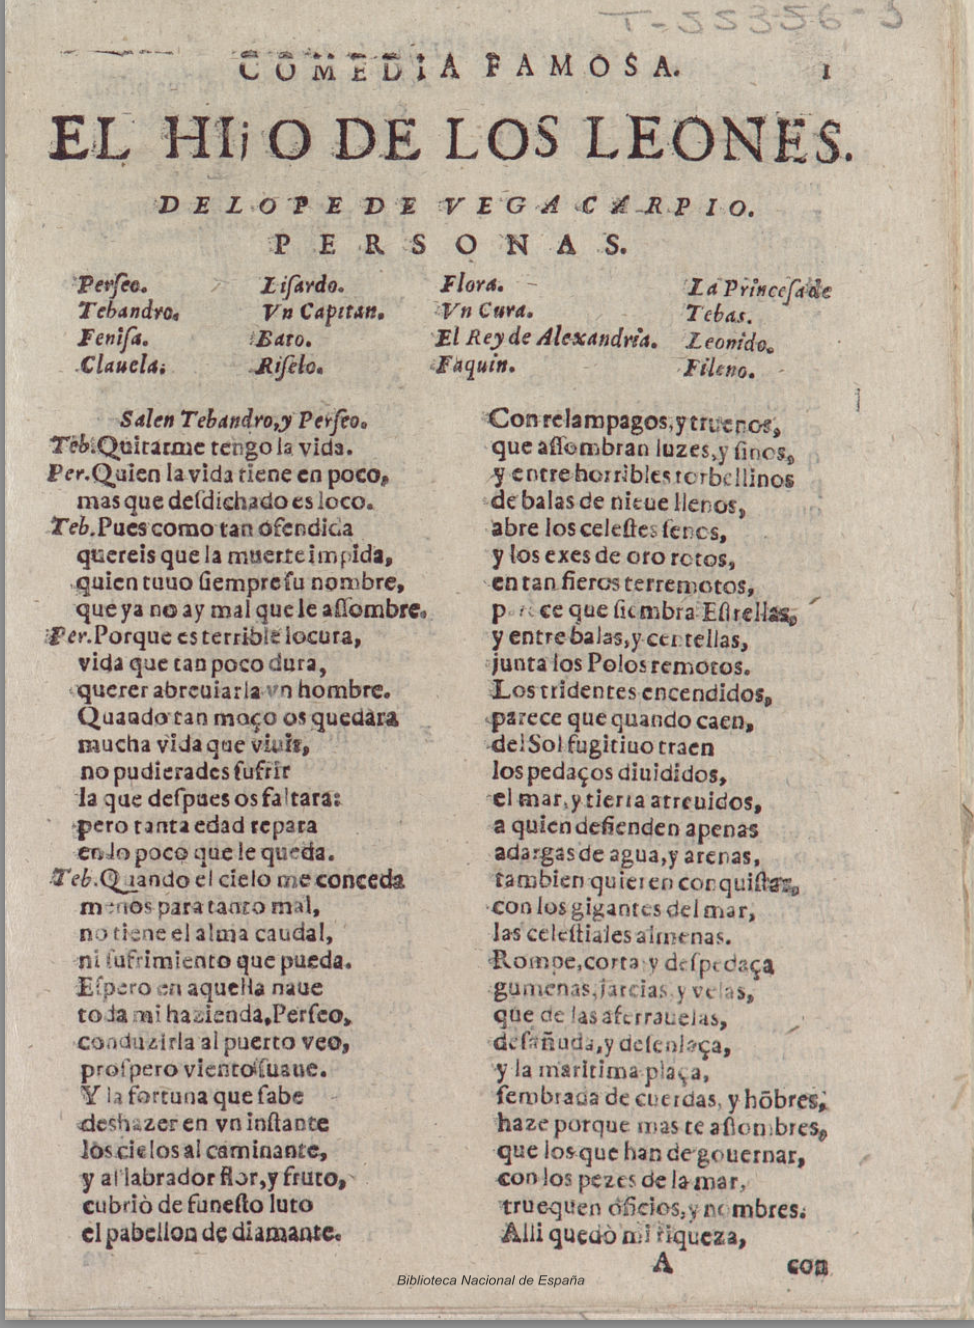 T-55356-3
COMEDIA FAMOSA. 1
EL HIjO DE LOS LEONES.
DE LOPE DE VEGA CARPIO.
PERSONAS.
Perſeo.
Tebandro.
Feniſa.
Clauela.
Liſardo.
Vn Capitan.
Bato.
Riſelo.
Flora.
Vn Cura.
El Rey de Alexandria.
Faquin.
La Princeſa de
Tebas.
Leonido.
Fileno.
Salen Tebandro, y Perſeo.
Teb. Quitarme tengo la vida.
Per. Quien la vida tiene en poco,
mas que deſdichado es loco.
Teb. Pues como tan ofendida
quereis que la muerte impida,
quien tuuo ſiempre ſu nombre,
que ya no ay mal que le aſſombre.
Per. Porque es terrible locura,
vida que tan poco dura,
querer abreuiarla vn hombre.
Quando tan moço os quedàra
mucha vida que viuir,
no pudierades ſufrir
la que deſpues os faltara:
pero tanta edad repara
en lo poco que le queda.
Teb. Quando el cielo me conceda
menos para tanto mal,
no tiene el alma caudal,
ni ſufrimiento que pueda.
Eſpero en aquella naue
toda mi hazienda, Perſeo,
conduzirla al puerto veo,
proſpero viento ſuaue.
Y la fortuna que ſabe
deshazer en vn inſtante
los cielos al caminante,
y al labrador flor, y fruto,
cubriò de funeſto luto
el pabellon de diamante.
Con relampagos, y truenos,
que aſſombran luzes, y ſinos,
y entre horribles torbellinos
de balas de nieue llenos,
abre los celeſtes ſenos,
y los exes de oro rotos,
en tan fieros terremotos,
parece que ſiembra Eſtrellas,
y entre balas, y centellas,
junta los Polos remotos.
Los tridentes encendidos,
parece que quando caen,
del Sol fugitiuo traen
los pedaços diuididos,
el mar, y tierra atreuidos,
a quien defienden apenas
adargas de agua, y arenas,
tambien quieren conquiſtar,
con los gigantes del mar,
las celeſtiales almenas.
Rompe, corta y deſpedaça
gumenas, jarcias y velas,
que de las aferrauelas,
deſañuda, y deſenlaça,
y la maritima plaça,
ſembrada de cuerdas, y hõbres,
haze porque mas te aſſombres,
que los que han de gouernar,
con los pezes de la mar,
truequen oficios, y nombres.
Alli quedò mi riqueza,
A con
Biblioteca Nacional de España